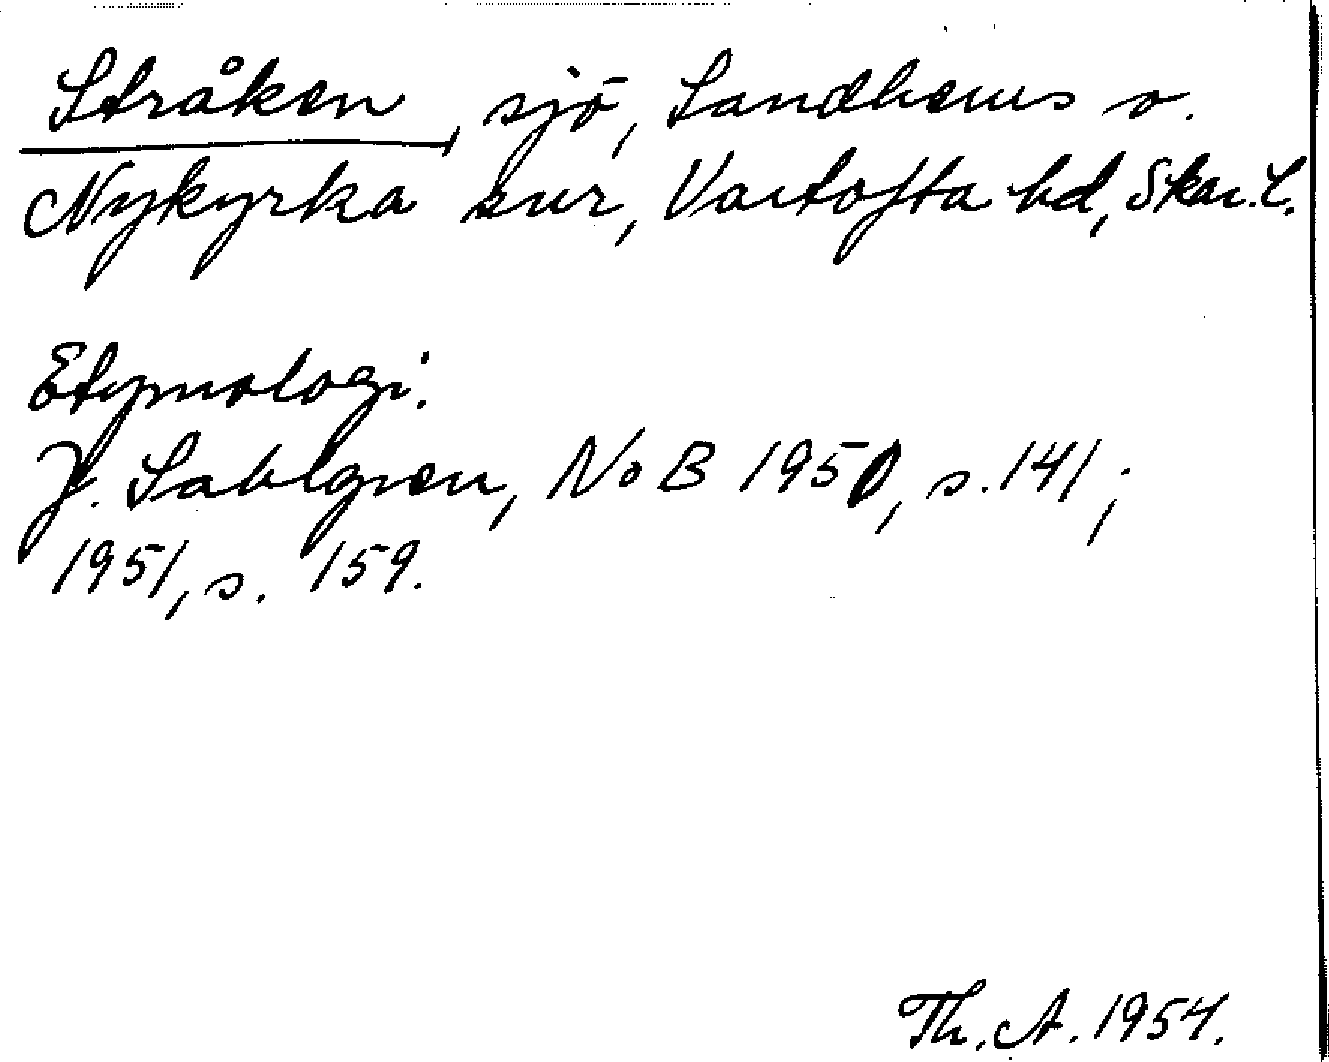 Stråken, sjö, Sandhems o.
Nykyrka snr, Vartofta hd, Skar. l.
Etymologi.
J. Sahlgren, NoB 1950, s. 141;
1951, s. 159.
Th. A. 1954.